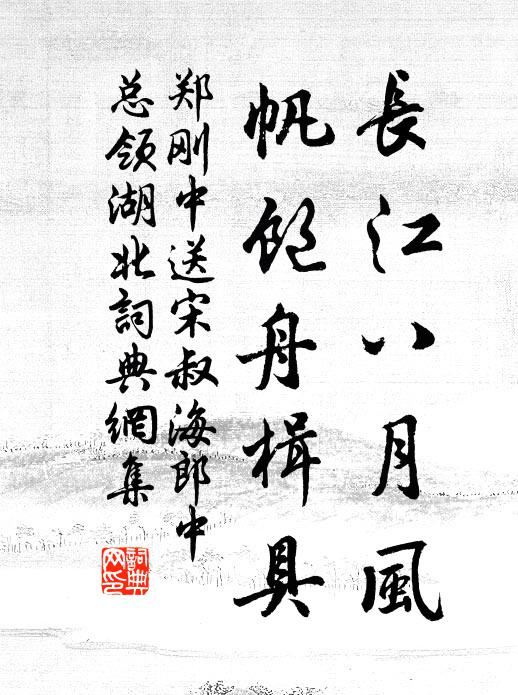 長江八月風
帆飽舟楫具
郑刚中送宋叔海郎中
总领湖北詞典網集
詞典
网印